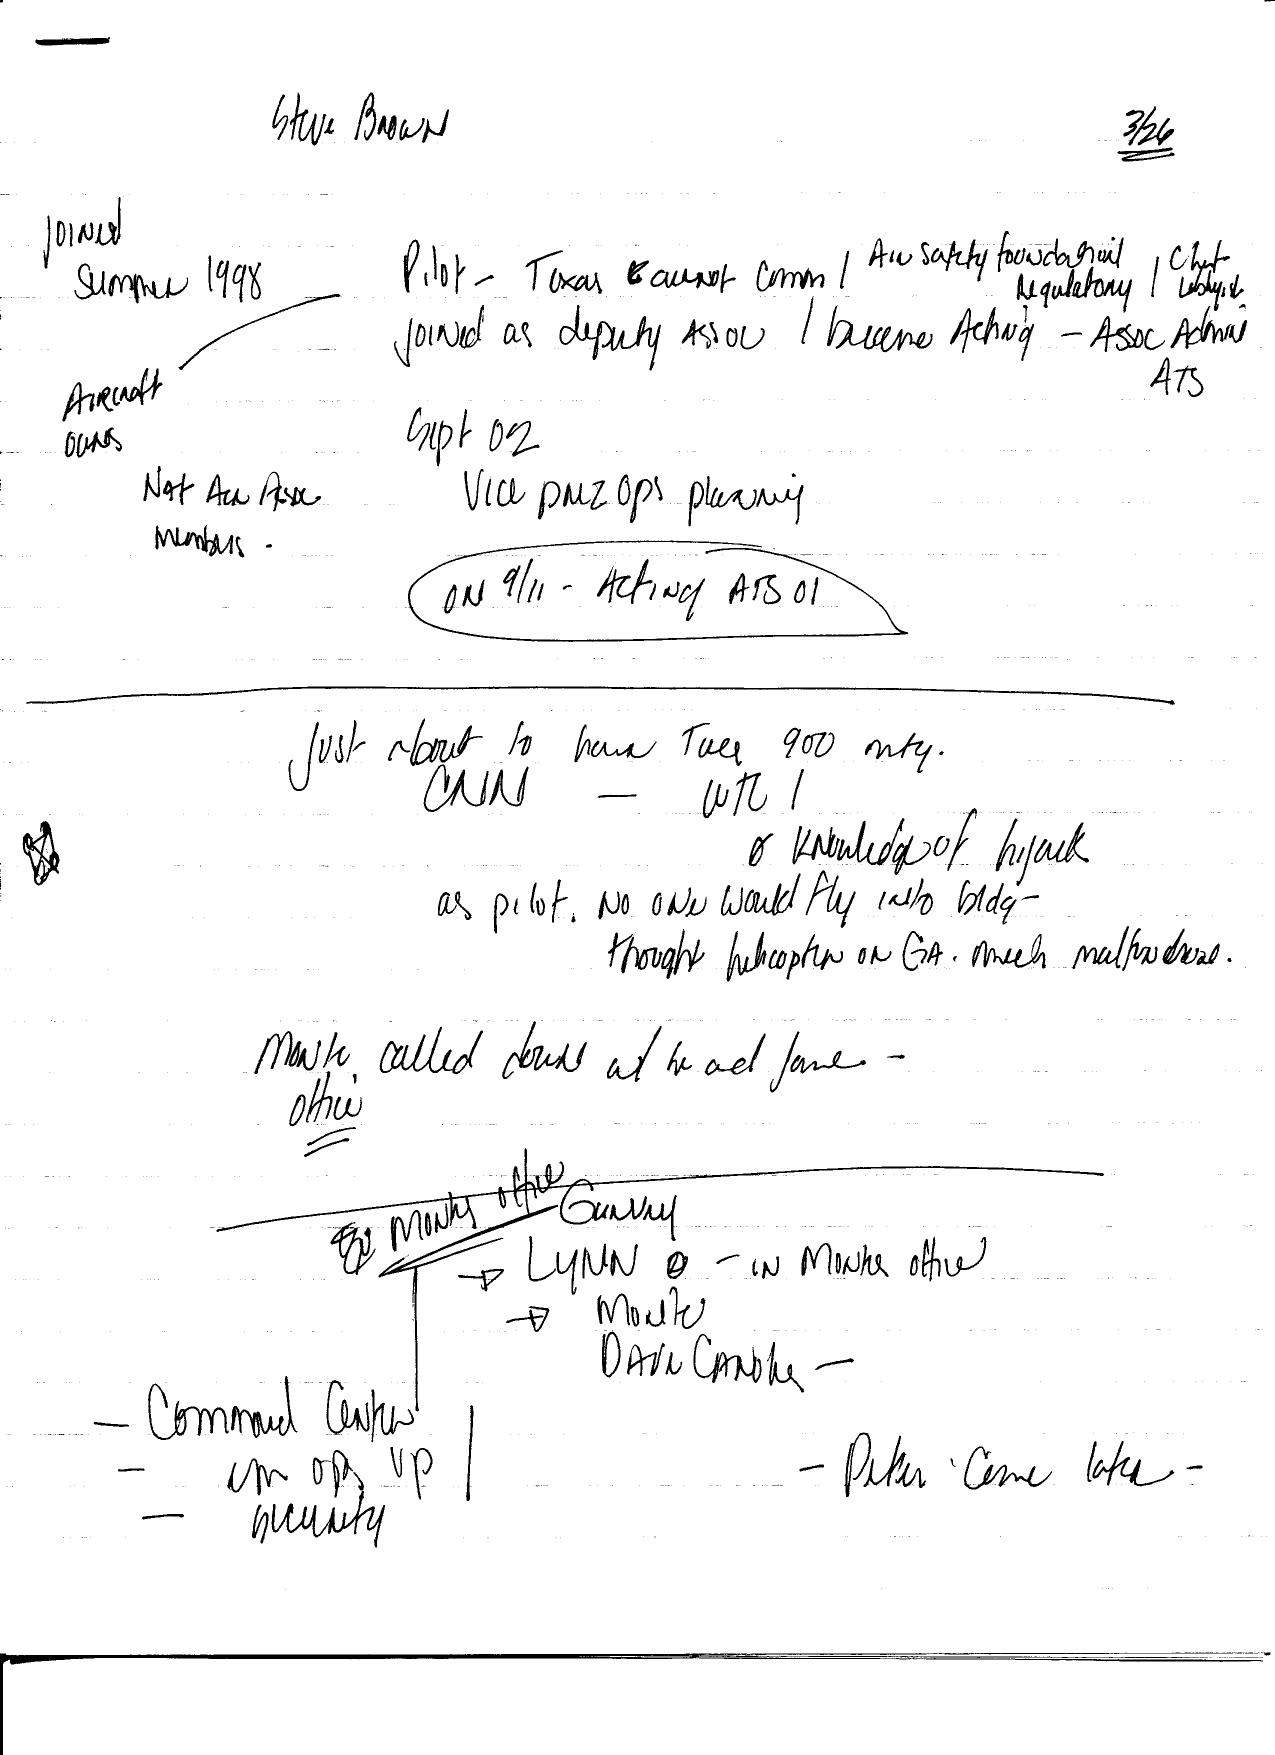 Steve Brown
3/26
Joined
Summer 1998
Pilot - Texas Comm / Air Safety foundation / Chief
Regulatory Lobbyist
joined as deputy Assoc / became Acting - Assoc Admin
ATS
Aircraft
owners
Sept 02
Nat Air Assoc
Members.
Vice prez Ops planning
ON 9/11 - Acting ATS 01
Just about to have Tues 900 mtg.
CNN - WTC 1
Ø knowledge of hijack
as pilot. No one would fly into bldg -
thought helicopter or GA. mech malfunctions.
Monte called down and he and Jane -
office
Monte's office
Garvey
→ LYNN - IN Montes office
→ Monte
Dave Canoles -
- Command Center
- ops up
- security
- Peter came later -